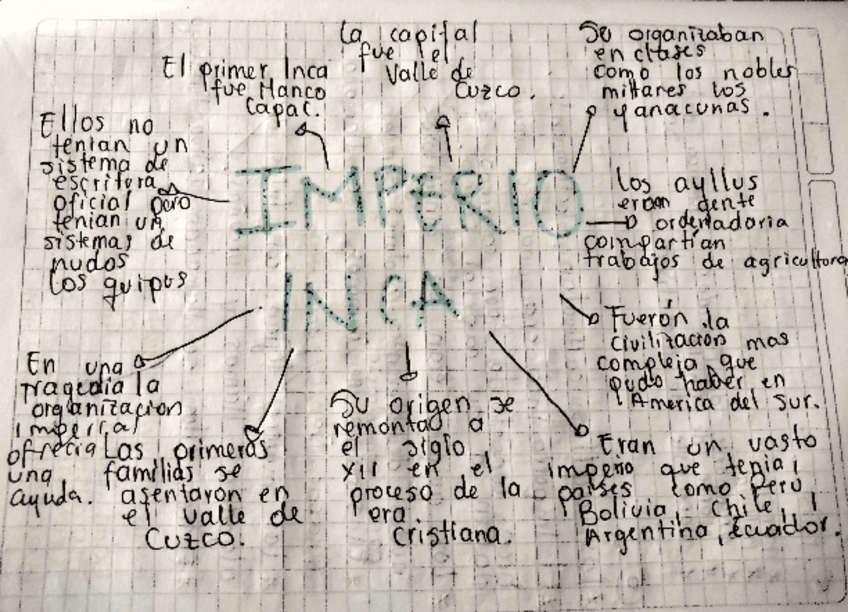 La capital
fue el
Valle de
Cuzco.
El primer Inca
fue Manco
Capac.
Se organizaban
en clases
como los nobles
militares los
yanacunas.
Ellos no
tenian un
sistema de
escritura
oficial pero
tenian un
sistemas de
nudos
los quipus
IMPERIO
INCA
los ayllus
eran
ordenadoria
compartían
trabajos de agricultura
Fuerón la
civilización mas
compleja que
pudo haber en
America del Sur.
En una
tragedia la
organizacion
imperial
ofrecia
una
ayuda.
Las primeras
familias se
asentaron en
el valle de
Cuzco.
Su origen se
remontaa a
el siglo
XII en el
proceso de la
era
cristiana.
Eran un vasto
imperio que tenia
paises como Perú
Bolivia, Chile,
Argentina, Ecuador.